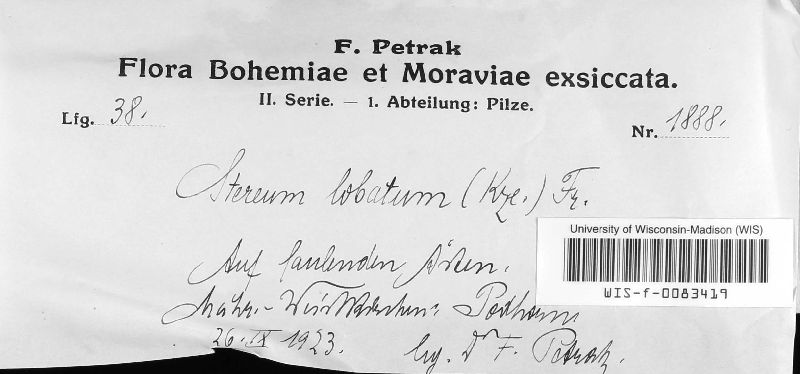 F. Petrak
Flora Bohemiae et Moraviae exsiccata.
II. Serie. — 1. Abteilung: Pilze.
Lfg. 38.
Nr. 1888.
Stereum lobatum (Kze.) Fr.
University of Wisconsin-Madison (WIS)
WIS-f-0083419
Auf faulenden Ästen.
Mähr.-Weisskirchen: Podhorn
26. IX 1923. leg. Dr F. Petrak.